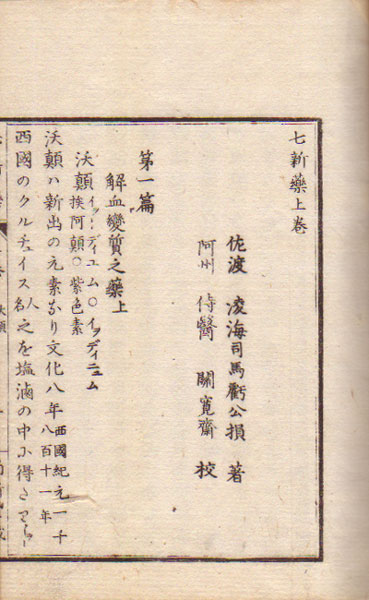 七新藥上卷
佐渡 凌海司馬虧公損 著
阿州 侍醫 關寬齋 校
第一篇
解血變質之藥上
沃顛イヲーディユム〇イヲディニュム
挨阿顛〇紫色素
沃顛ハ新出の元素なり文化八年西國紀元一千八百十一年
西國のクルチュイス人名之を塩滷の中に得さ